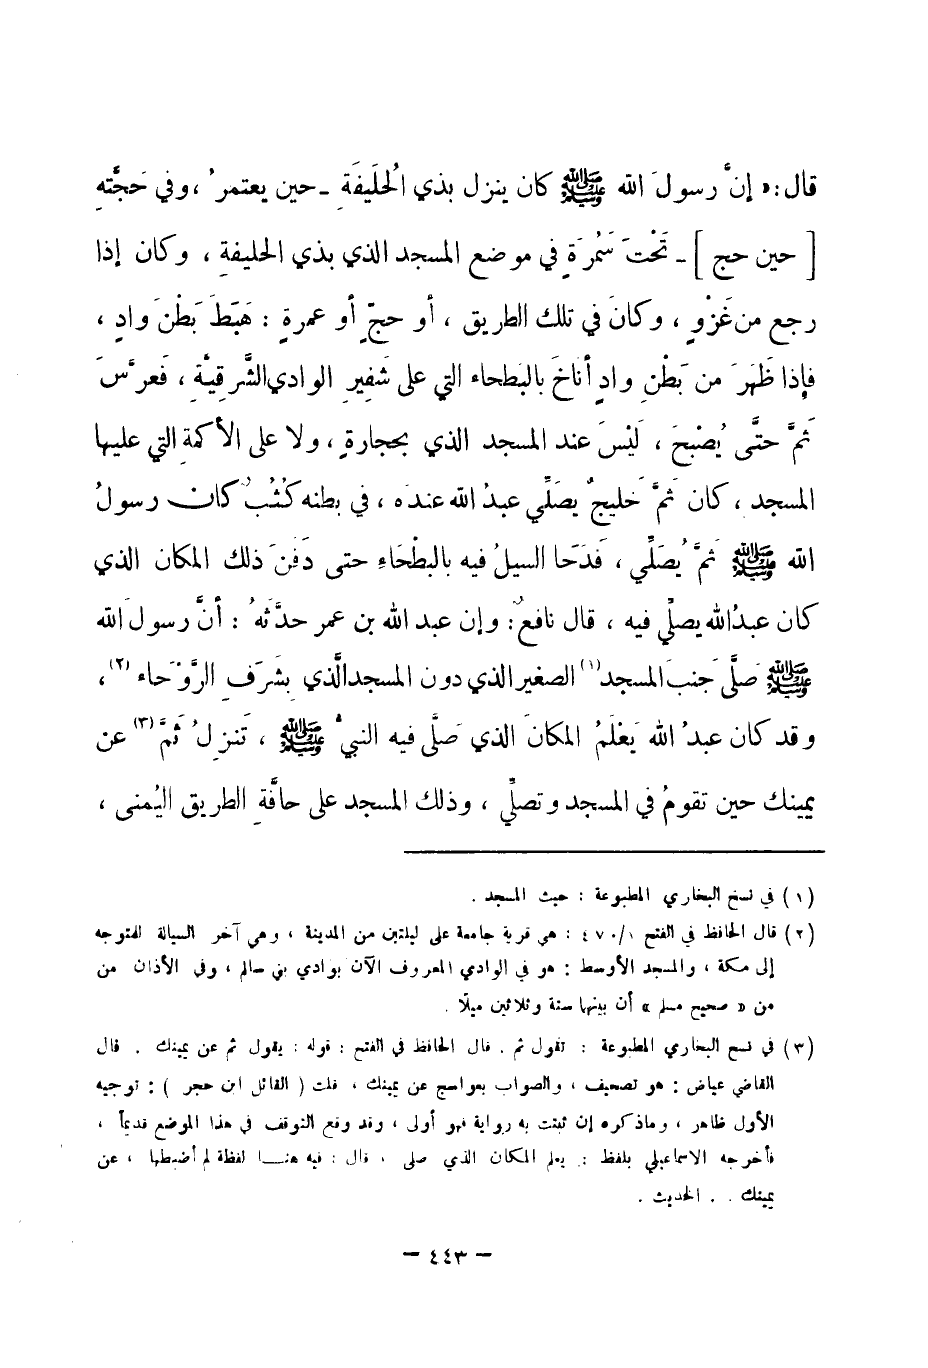 قال: « إنَّ رسولَ الله ﷺ كان ينزل بذي الُحلَيفَةِ - حين يعتمرُ ، وفي حَجَّتهِ
[ حين حج ] - تَحْتَ سَمُرَةٍ في موضع المسجد الذي بذي الحليفة ، وكان إذا
رجع من غَزْوٍ ، وكانَ في تلك الطريق ، أو حجّ ٍ أو عمرةٍ : هَبَطَ بَطْنَ وادٍ ،
فإذا ظَهَرَ من بَطْنِ وادٍ أناخَ بالبَطحاء التي على شَفِيرِ الوادي الشَّرقيَّةِ ، فَعرَّسَ
ثَمَّ حتَّى يُصْبحَ ، لَيْسَ عند المسجد الذي بحجارةٍ ، ولا على الأكمَةِ التي عليها
المسجد ، كان ثَمَّ خَليجٌ يصَلِّي عبدُ الله عنده ، في بطنه كُثُبٌ كان رسولُ
الله ﷺ ثَمَّ يُصَلِّي ، فَدَحَا السيلُ فيه بالبطْحَاءِ حتى دَفَنَ ذلك المكان الذي
كان عبدُالله يصلِّي فيه ، قال نافعٌ: وإن عبد الله بن عمر حدَّثَهُ : أنَّ رسولَ الله
ﷺ صَلَّى جَنبَ المسجد(١) الصغير الذي دون المسجد الَّذي بِشَرَفِ الرَّوْحَاء (٢)،
وقد كان عبدُ الله يَعْلَمُ المكانَ الذي صَلَّى فيه النبيُّ ﷺ ، تَنزِلُ ثَمَّ (٣) عن
يمينك حين تقومُ في المسجد وتصلِّي ، وذلك المسجد على حافَّةِ الطريق اليُمنى ،
(١) في نسخ البخاري المطبوعة : حيث المسجد .
(٢) قال الحافظ في الفتح ٤٧٠/١ : هي قرية جامعة على ليلتين من المدينة ، وهي آخر السيالة للمتوجه
إلى مكة ، والمسجد الأوسط : هو في الوادي المعروف الآن بوادي بني سالم ، وفي الأذان من
من « صحيح مسلم » أن بينها ستة وثلاثين ميلًا .
(٣) في نسخ البخاري المطبوعة : تقول ثم . قال الحافظ في الفتح : قوله : يقول ثم عن يمينك . قال
القاضي عياض : هو تصحيف ، والصواب بعواسج عن يمينك ، قلت ( القائل ابن حجر ) : توجيه
الأول ظاهر ، وماذكره إن ثبتت به رواية فهو أولى ، وقد وقع التوقف في هذا الموضع قديماً ،
فأخرجه الاسماعيلي بلفظ : يعلم المكان الذي صلى ، قال : فيه هنا لفظة لم أضبطها ، عن
يمينك . . الحديث .
– ٤٤٣ –